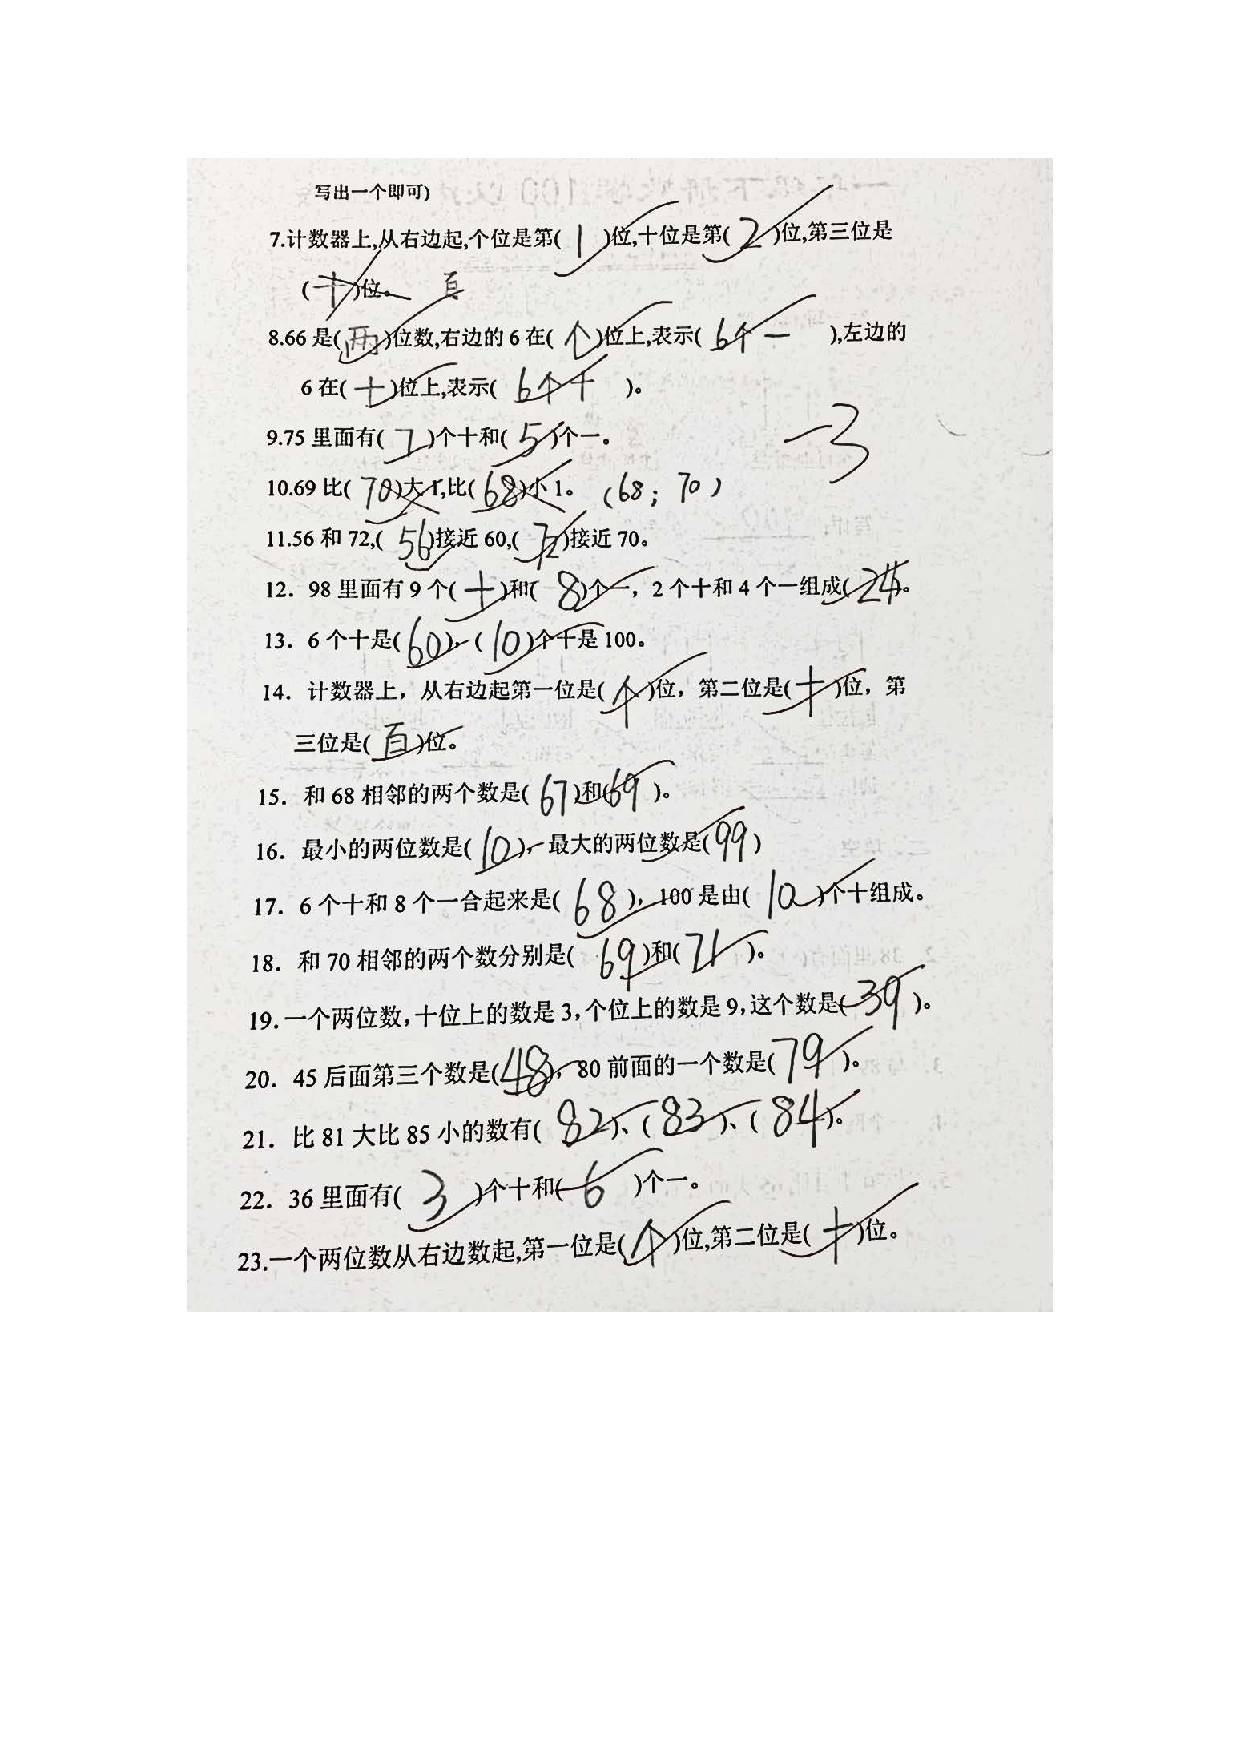 写出一个即可)
7.计数器上,从右边起,个位是第( 1 )位,十位是第( 2 )位,第三位是
( 十 )位。 百
8.66 是( 两 )位数,右边的 6 在( 个 )位上,表示( 6个一 ),左边的
6 在( 十 )位上,表示( 6个十 )。
9.75 里面有( 7 )个十和( 5 )个一。
-3
10.69 比( 70 )大 1,比( 68 )小 1。 (68; 70)
11.56 和 72,( 56 )接近 60,( 72 )接近 70。
12. 98 里面有 9 个( 十 )和( 8 )个一, 2 个十和 4 个一组成( 24 )。
13. 6 个十是( 60 ), ( 10 )个十是 100。
14. 计数器上，从右边起第一位是( 个 )位，第二位是( 十 )位，第
三位是( 百 )位。
15. 和 68 相邻的两个数是( 67 )和( 69 )。
16. 最小的两位数是( 10 ), 最大的两位数是( 99 )
17. 6 个十和 8 个一合起来是( 68 ), 100 是由( 10 )个十组成。
18. 和 70 相邻的两个数分别是( 69 )和( 71 )。
19.一个两位数,十位上的数是 3,个位上的数是 9,这个数是( 39 )。
20. 45 后面第三个数是( 48 ), 80 前面的一个数是( 79 )。
21. 比 81 大比 85 小的数有( 82 )、( 83 )、( 84 )。
22. 36 里面有( 3 )个十和( 6 )个一。
23.一个两位数从右边数起,第一位是( 个 )位,第二位是( 十 )位。